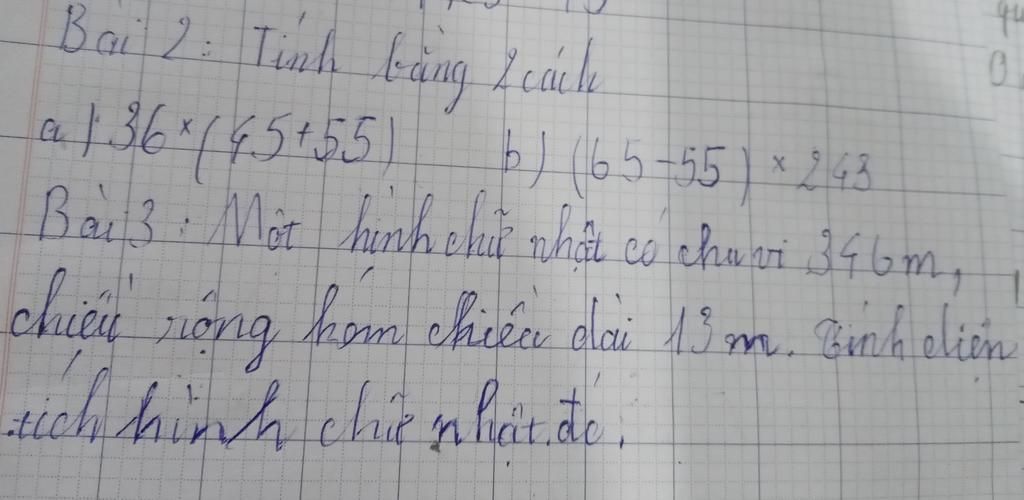 Bài 2: Tính bằng 2 cách
a) 36 × (45+55) b) (65-55) × 243
Bài 3: Một hình chữ nhật có chu vi 346m,
chiều rộng hơm chiều dài 13m. Tính diện
tích hình chữ nhật đó.